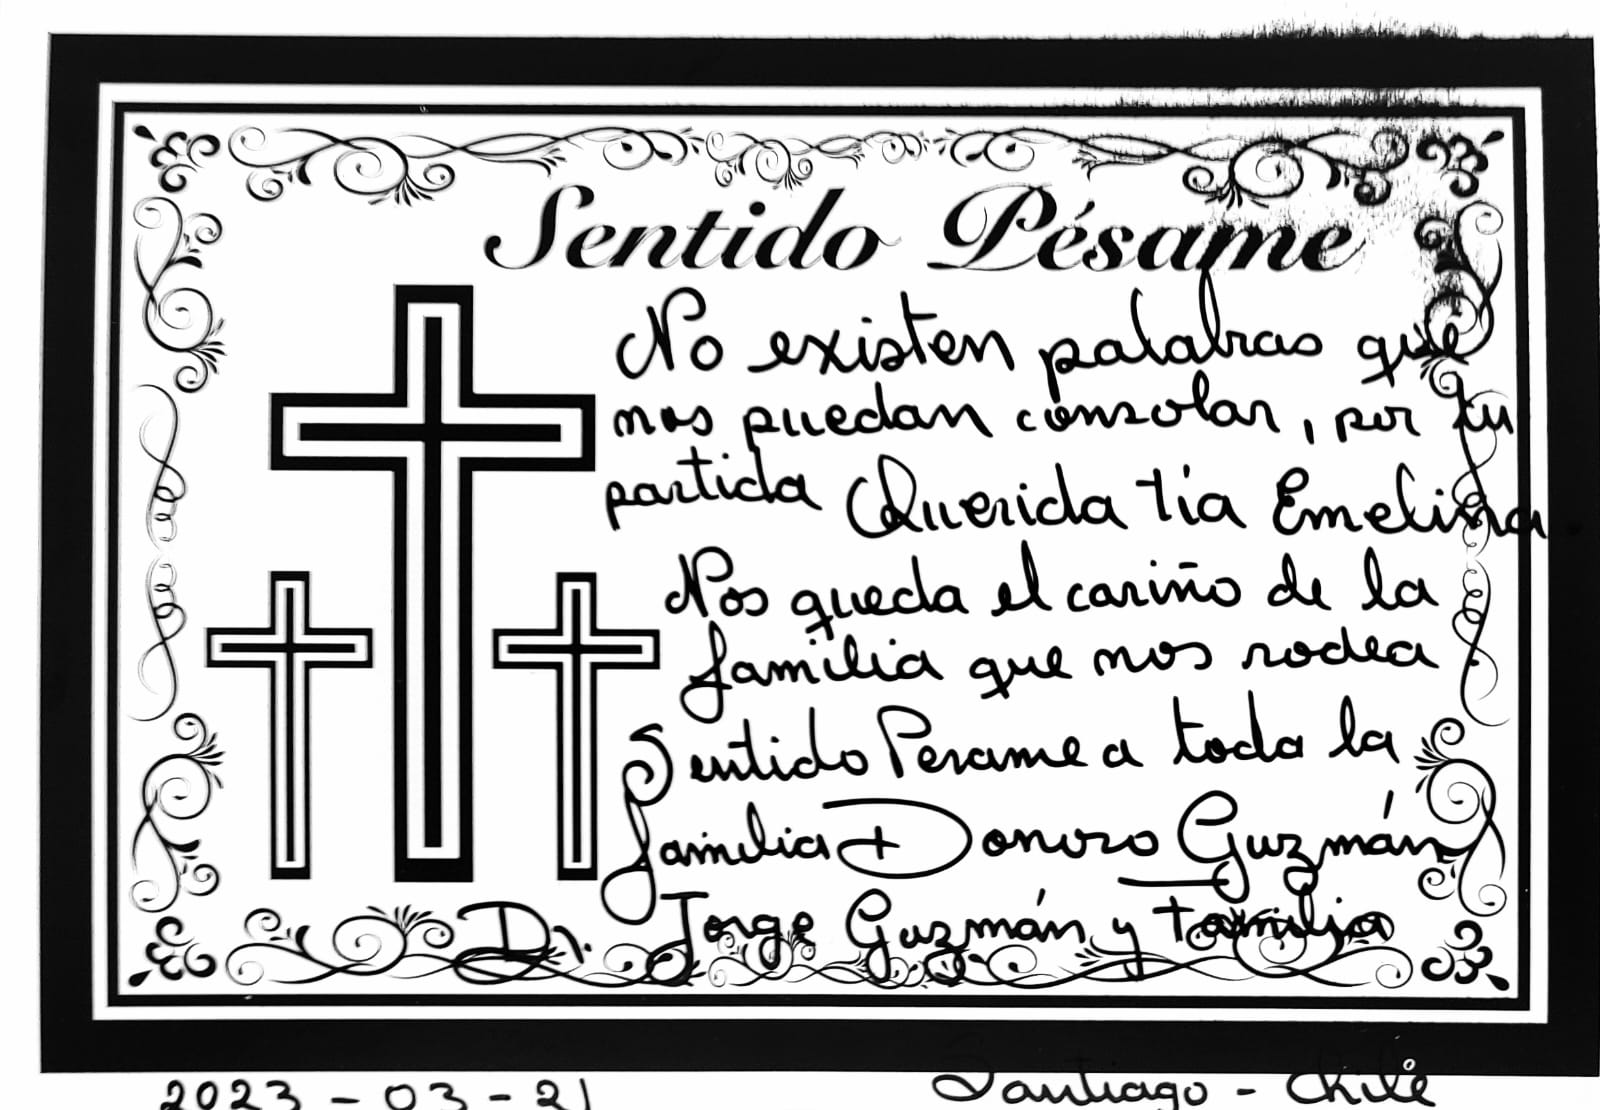 Sentido Pésame
No existen palabras que
nos puedan consolar, por tu
partida Querida tía Emelina
Nos queda el cariño de la
familia que nos rodea
Sentido Pesame a toda la
familia Donoso Guzmán
Dr. Jorge Guzmán y familia
2023-03-21 Santiago - Chile